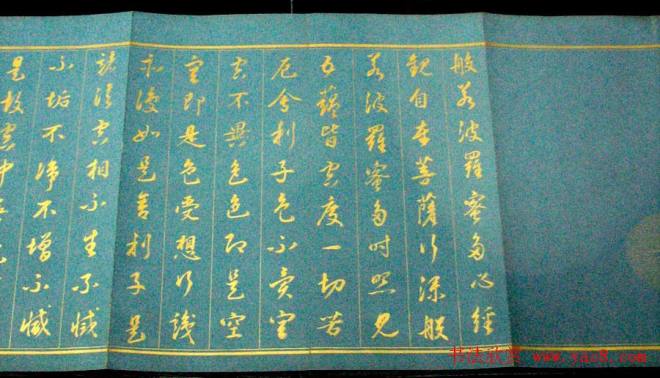 般若波羅蜜多心經
觀自在菩薩行深般
若波羅蜜多時照見
五蘊皆空度一切苦
厄舍利子色不異空
空不異色色即是空
空即是色受想行識
亦復如是舍利子是
諸法空相不生不滅
不垢不淨不增不減
是故空中
书法欣赏 www.yac8.com